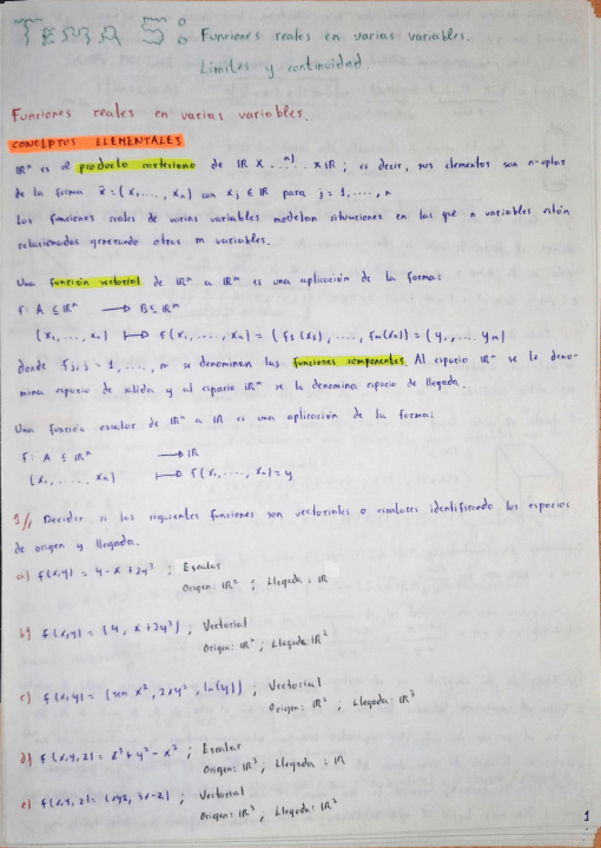 TEMA 5: Funciones reales en varias variables.
Límites y continuidad.
Funciones reales en varias variables.
CONCEPTOS ELEMENTALES
ℝⁿ es el producto cartesiano de ℝ x .ⁿ⁾. x ℝ ; es decir, sus elementos son n-uplas
de la forma x̄ = (x₁, ..., xₙ) con xⱼ ∈ ℝ para j = 1, ..., n
Las funciones reales de varias variables modelan situaciones en las que n variables están
relacionadas generando otras m variables.
Una función vectorial de ℝⁿ a ℝᵐ es una aplicación de la forma:
f: A ⊆ ℝⁿ → B ⊆ ℝᵐ
(x₁, ..., xₙ) ↦ f(x₁, ..., xₙ) = (f₁(x₁), ..., fₘ(xₙ)) = (y₁, ... yₘ)
donde fⱼ, j = 1, ..., m se denominan las funciones componentes. Al espacio ℝⁿ se le deno-
mina espacio de salida y al espacio ℝᵐ se le denomina espacio de llegada.
Una función escalar de ℝⁿ a ℝ es una aplicación de la forma:
f: A ⊆ ℝⁿ → ℝ
(x₁, ..., xₙ) ↦ f(x₁, ..., xₙ) = y
1// Decidir si las siguientes funciones son vectoriales o escalares identificando los espacios
de origen y llegada.
a) f(x,y) = 4 - x + 2y³ ; Escalar
Origen: ℝ² ; Llegada: ℝ
b) f(x,y) = (4, x + 2y³) ; Vectorial
Origen: ℝ² ; Llegada ℝ²
c) f(x,y) = (sen x², 2xy², ln(y)) ; Vectorial
Origen: ℝ² ; Llegada: ℝ³
d) f(x,y,z) = z³ + y² - x² ; Escalar
Origen: ℝ³ ; Llegada: ℝ
e) f(x,y,z) = (xyz, 3x-z) ; Vectorial
Origen: ℝ³ ; Llegada: ℝ²
1